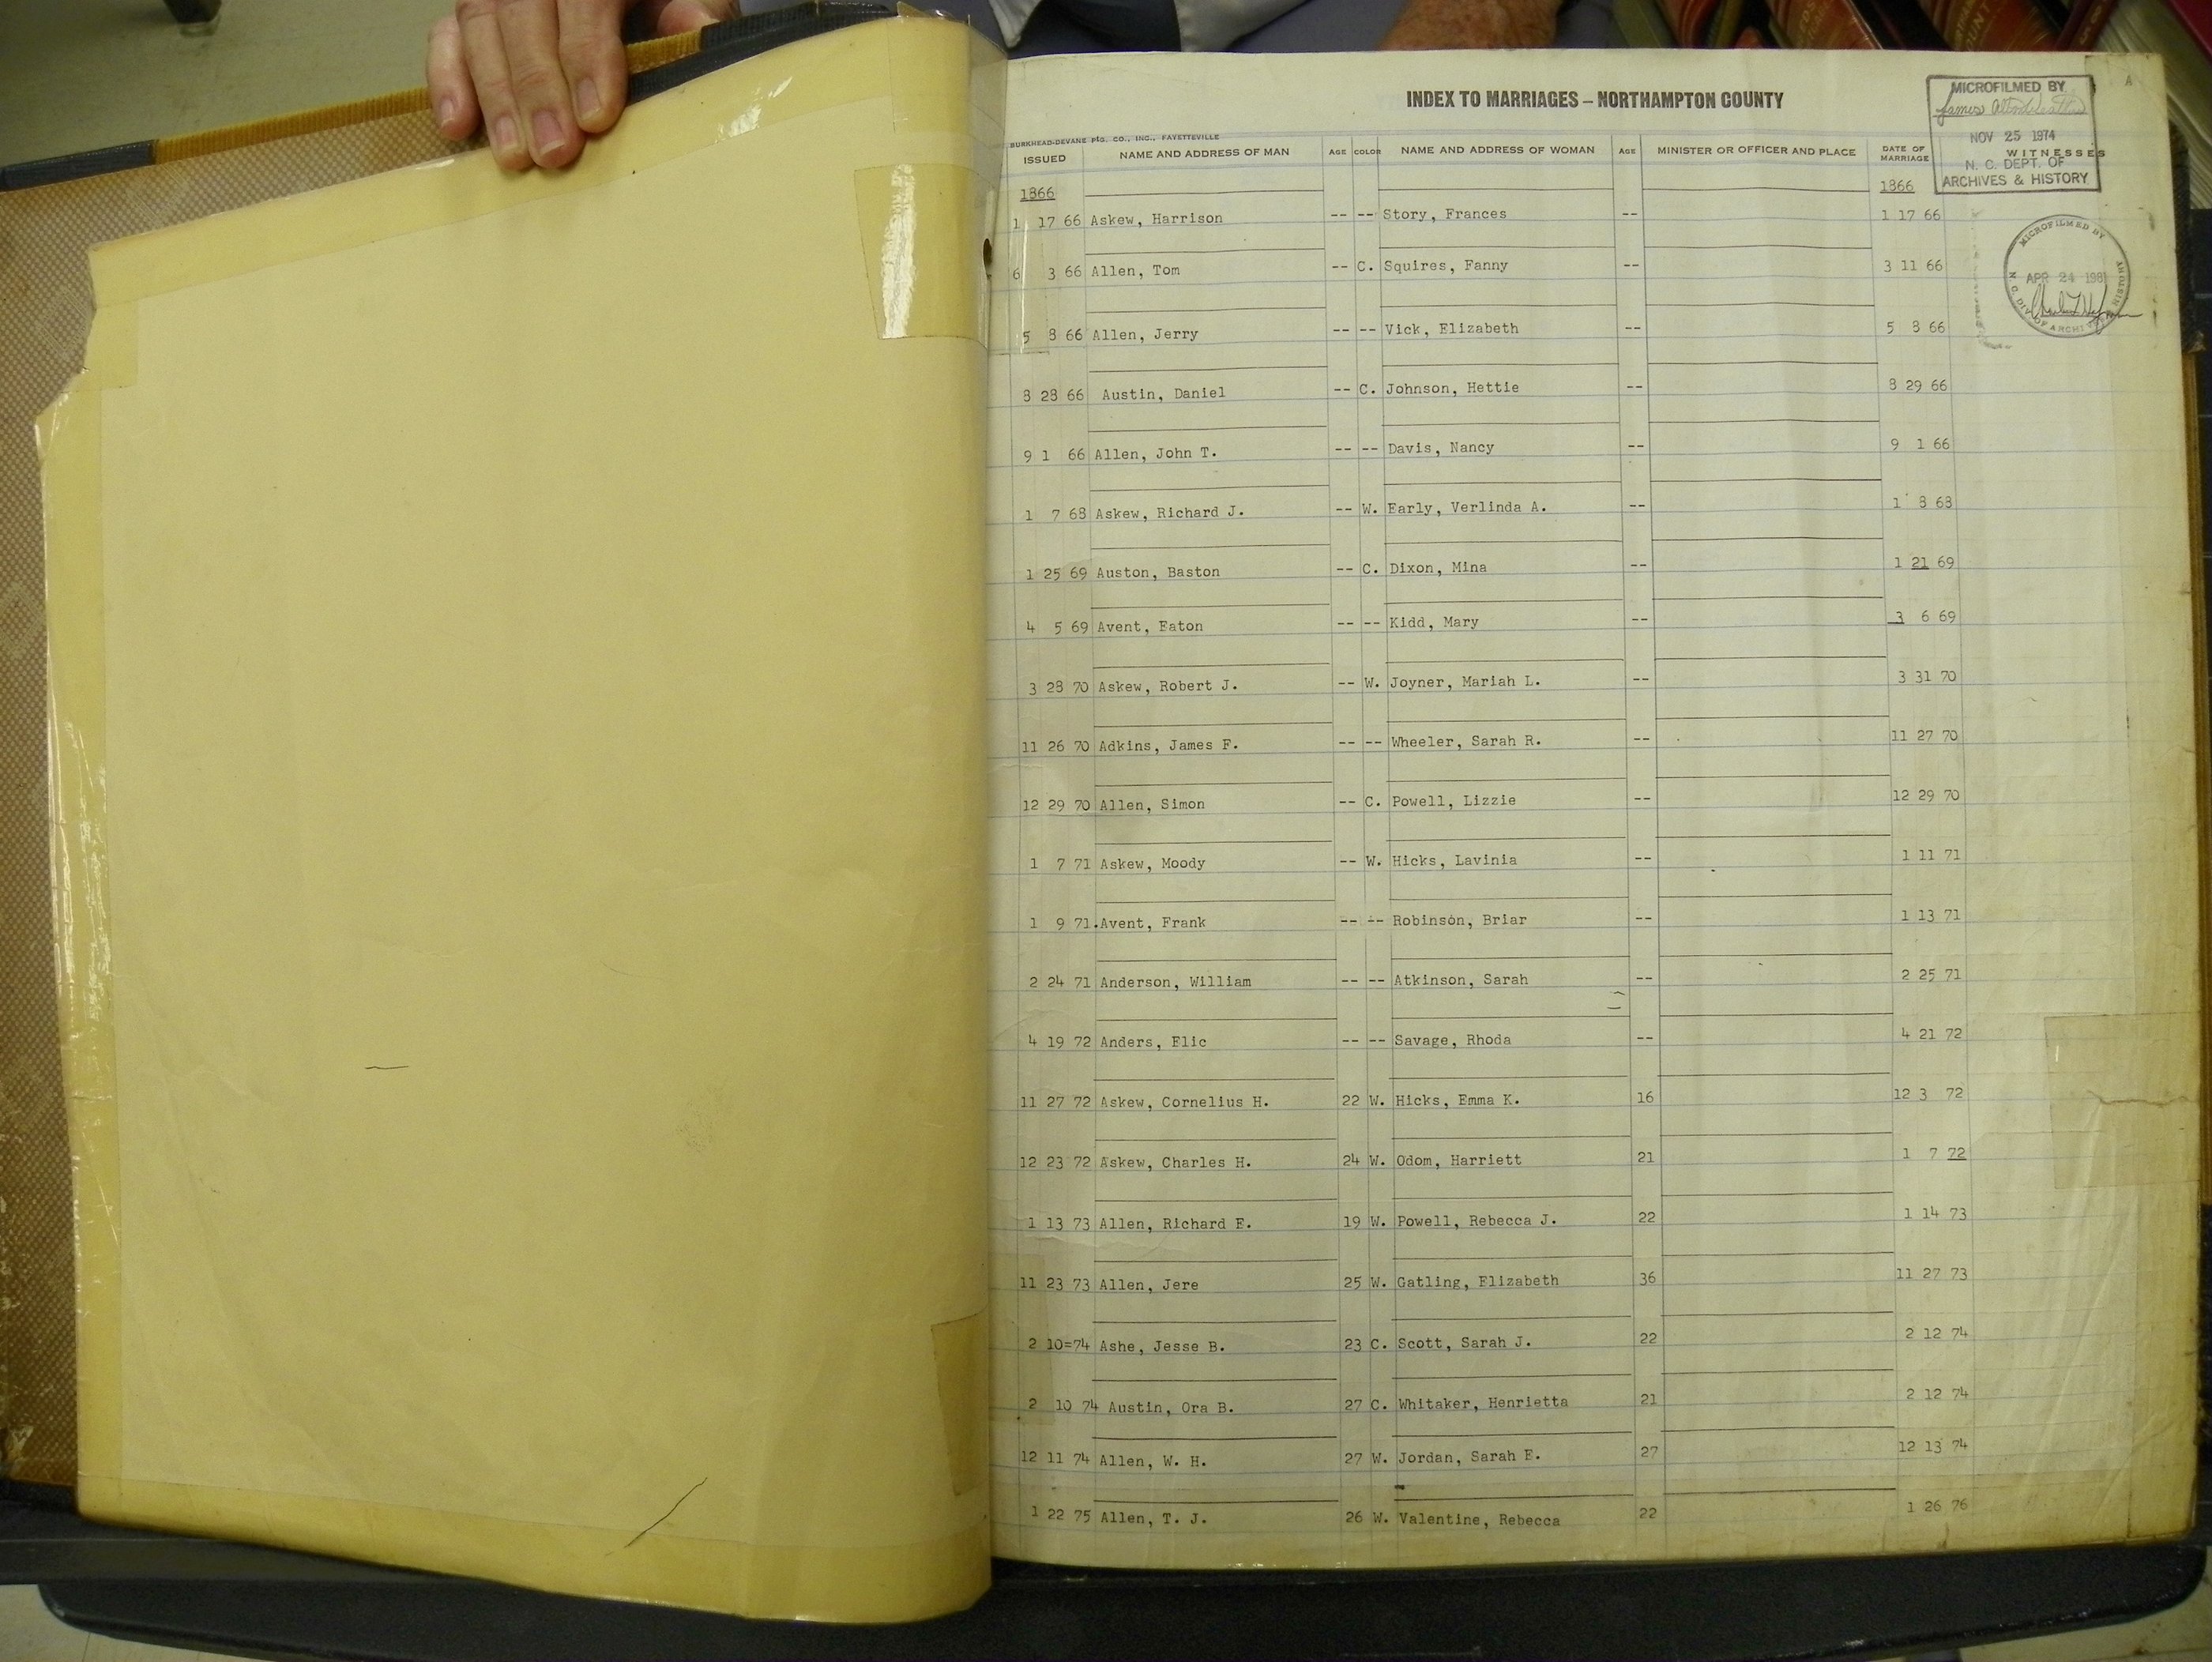 INDEX TO MARRIAGES – NORTHAMPTON COUNTY
A
MICROFILMED BY
NOV 25 1974
N. C. DEPT. OF
ARCHIVES & HISTORY
BURKHEAD-DEVANE PTG. CO., INC., FAYETTEVILLE
ISSUED NAME AND ADDRESS OF MAN AGE COLOR NAME AND ADDRESS OF WOMAN AGE MINISTER OR OFFICER AND PLACE DATE OF MARRIAGE WITNESSES
1866 1866
1 17 66 Askew, Harrison -- -- Story, Frances -- 1 17 66
MICROFILMED BY
APR 24 1981
N. C. DIV. OF ARCHIVES HISTORY
6 3 66 Allen, Tom -- C. Squires, Fanny -- 3 11 66
5 8 66 Allen, Jerry -- -- Vick, Elizabeth -- 5 8 66
8 28 66 Austin, Daniel -- C. Johnson, Hettie -- 8 29 66
9 1 66 Allen, John T. -- -- Davis, Nancy -- 9 1 66
1 7 68 Askew, Richard J. -- W. Early, Verlinda A. -- 1 8 68
1 25 69 Auston, Baston -- C. Dixon, Mina -- 1 21 69
4 5 69 Avent, Eaton -- -- Kidd, Mary -- 3 6 69
3 28 70 Askew, Robert J. -- W. Joyner, Mariah L. -- 3 31 70
11 26 70 Adkins, James F. -- -- Wheeler, Sarah R. -- 11 27 70
12 29 70 Allen, Simon -- C. Powell, Lizzie -- 12 29 70
1 7 71 Askew, Moody -- W. Hicks, Lavinia -- 1 11 71
1 9 71. Avent, Frank -- -- Robinson, Briar -- 1 13 71
2 24 71 Anderson, William -- -- Atkinson, Sarah -- 2 25 71
4 19 72 Anders, Elic -- -- Savage, Rhoda -- 4 21 72
11 27 72 Askew, Cornelius H. 22 W. Hicks, Emma K. 16 12 3 72
12 23 72 Askew, Charles H. 24 W. Odom, Harriett 21 1 7 72
1 13 73 Allen, Richard E. 19 W. Powell, Rebecca J. 22 1 14 73
11 23 73 Allen, Jere 25 W. Gatling, Elizabeth 36 11 27 73
2 10=74 Ashe, Jesse B. 23 C. Scott, Sarah J. 22 2 12 74
2 10 74 Austin, Ora B. 27 C. Whitaker, Henrietta 21 2 12 74
12 11 74 Allen, W. H. 27 W. Jordan, Sarah E. 27 12 13 74
1 22 75 Allen, T. J. 26 W. Valentine, Rebecca 22 1 26 76